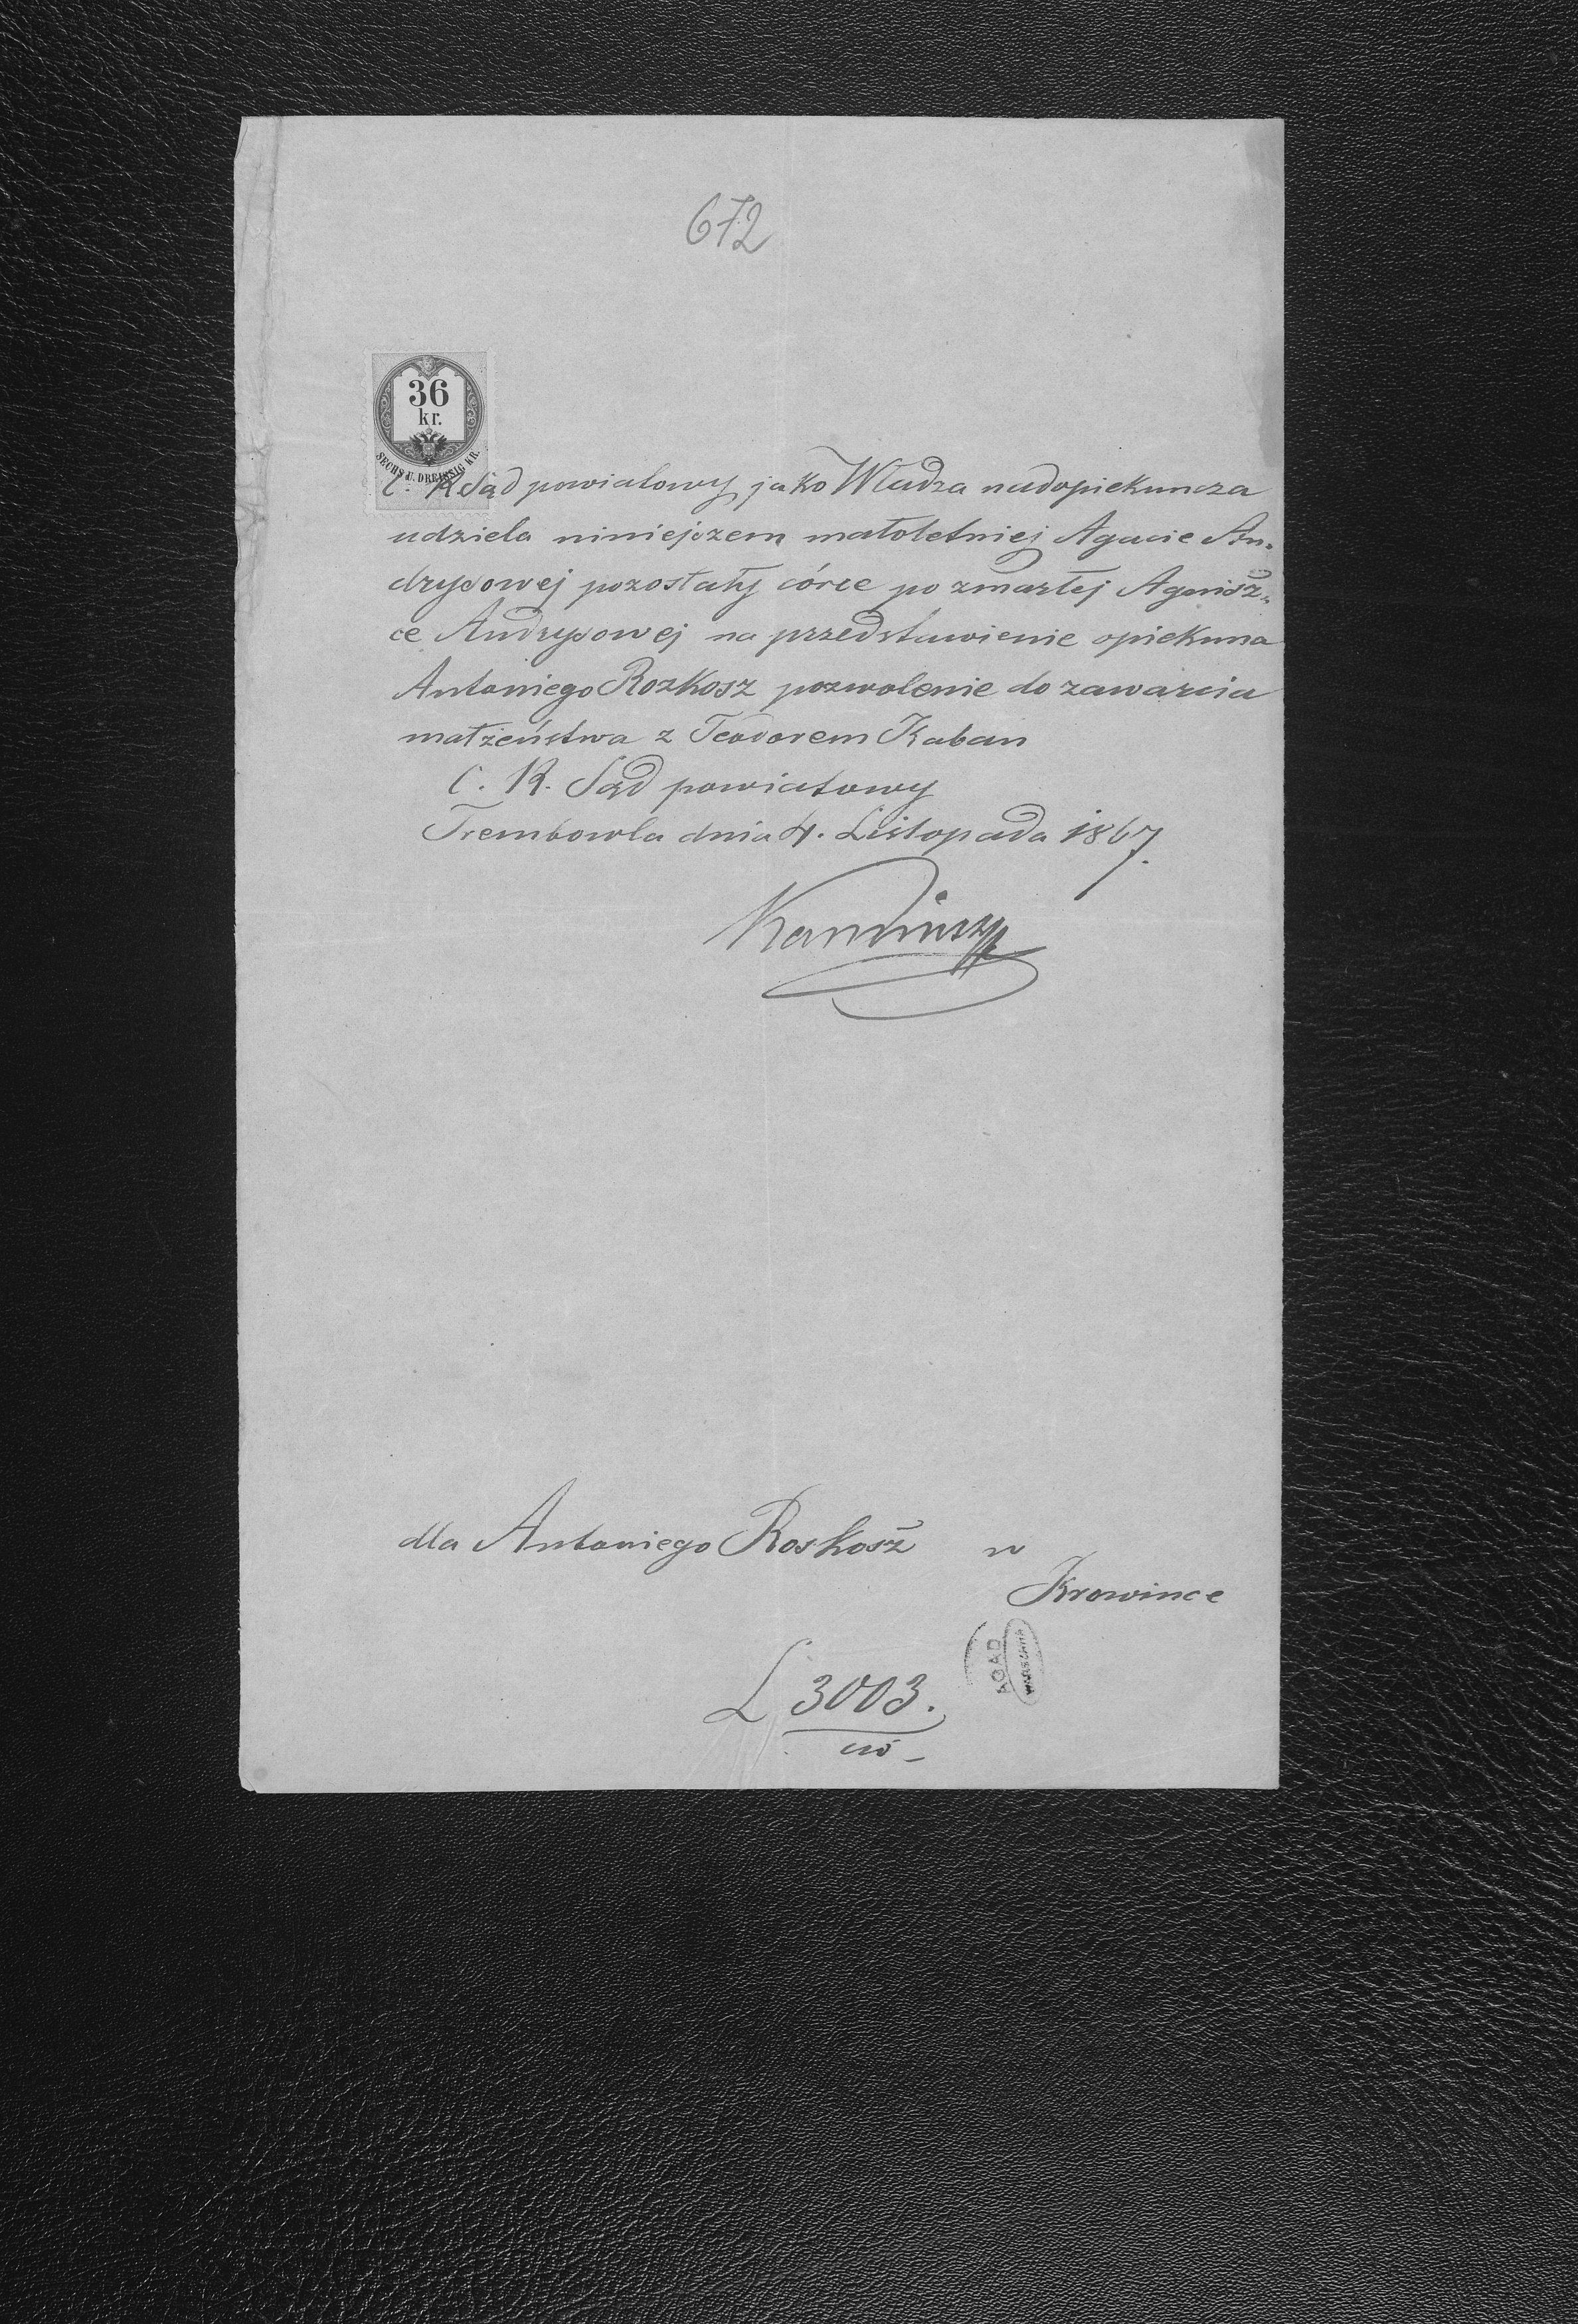 672
36
kr.
SECHS U. DREISSIG KR.
C. K. Sąd powiatowy jako Władza nadopiekuncza
udziela niniejszem małoletniej Agacie An-
drysowej pozostały córce po zmarłej Agnisz-
ce Andrysowej na przedstawienie opiekuna
Antoniego Rozkosz pozwolenie do zawarcia
małżeństwa z Teodorem Kaban
C. K. Sąd powiatowy
Trembowla dnia 4. Listopada 1867.
dla Antoniego Roskosz w
Krowince
AGAD
WARSZAWA
L 3003.